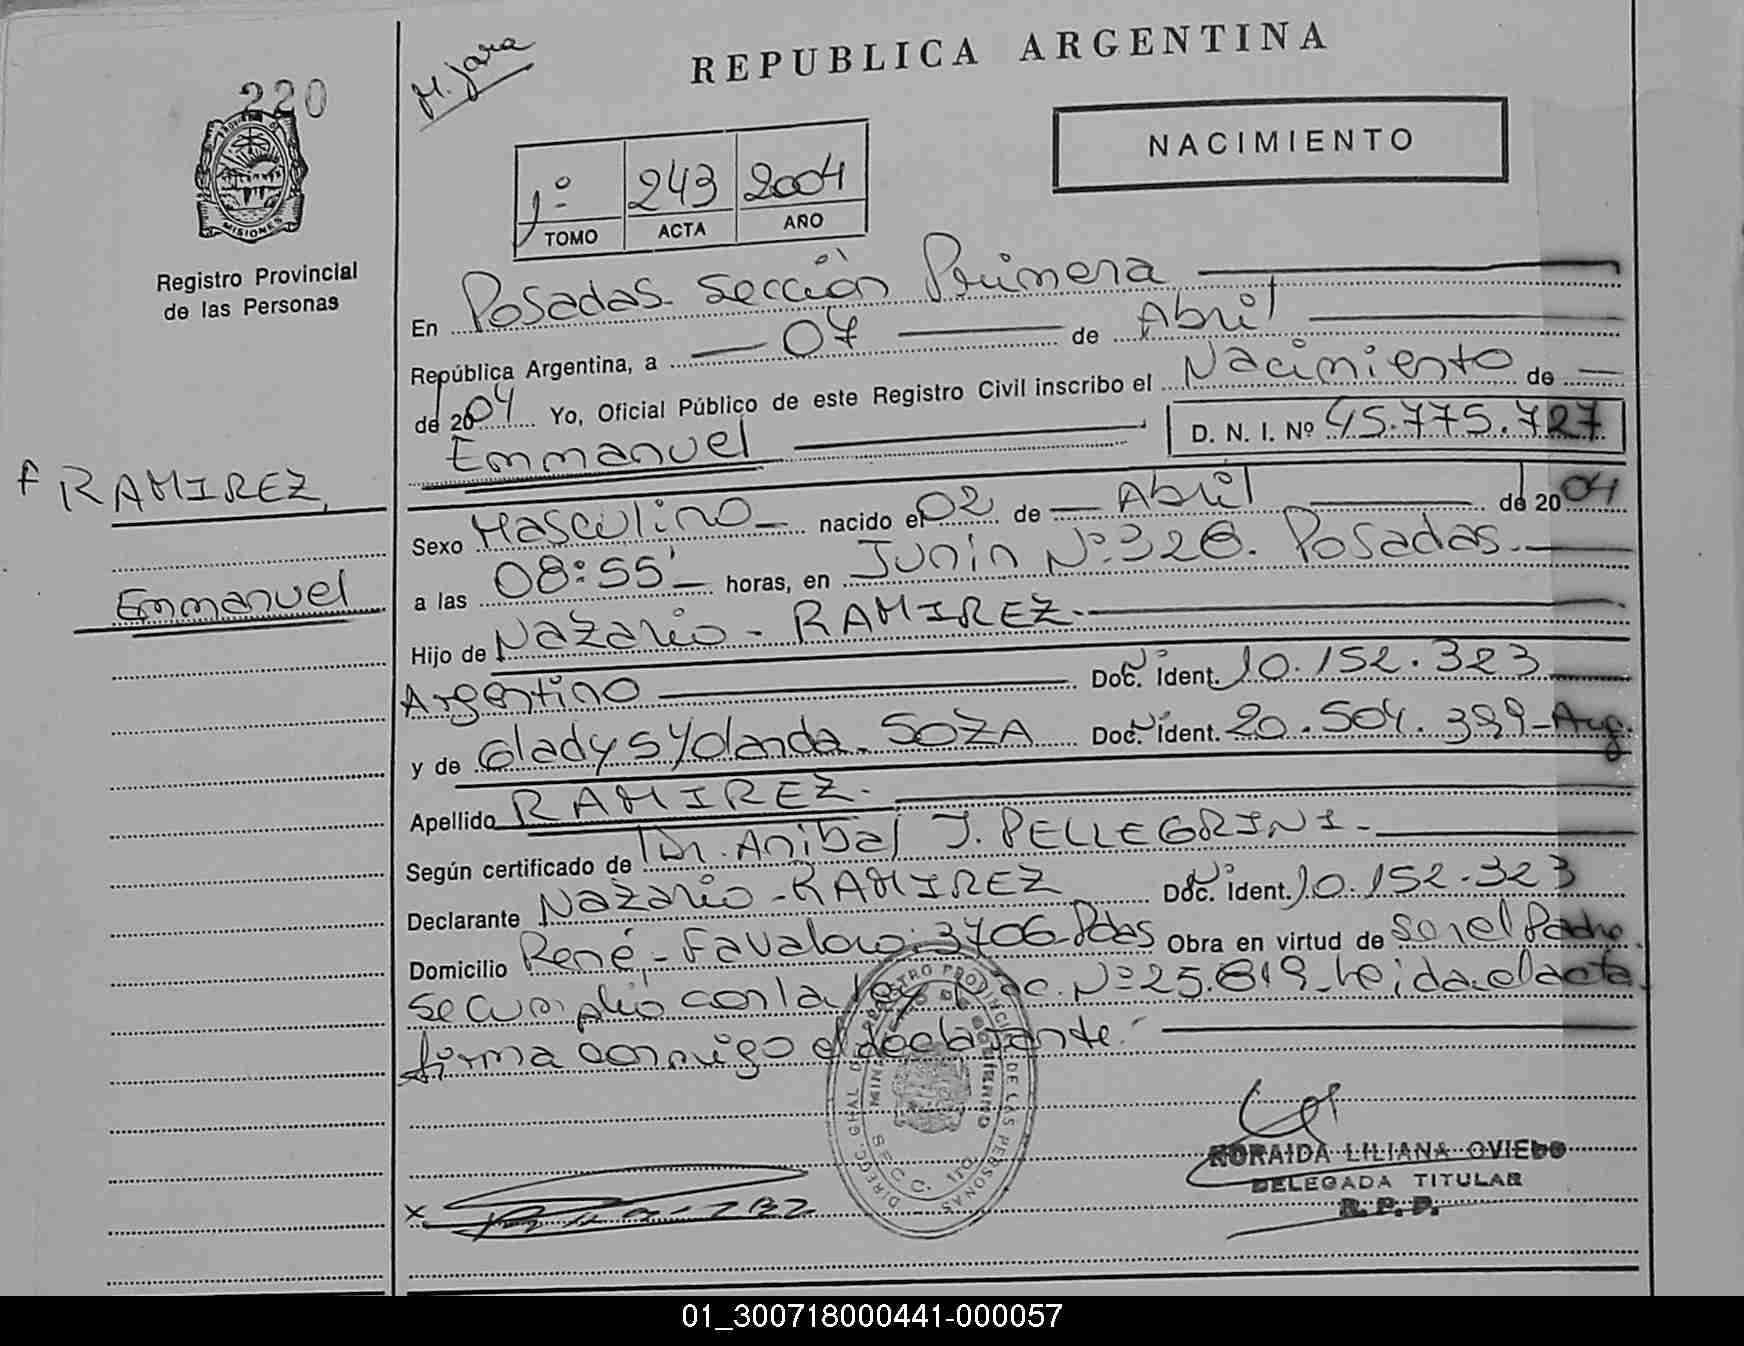 220
M. Jara
REPUBLICA ARGENTINA
NACIMIENTO
1º 243 2004
TOMO ACTA AÑO
MISIONES
Registro Provincial
de las Personas
En Posadas. Sección Primera
República Argentina, a 07 de Abril
de 2004 Yo, Oficial Público de este Registro Civil inscribo el Nacimiento de
Emmanuel D. N. I. Nº 45.775.727
RAMIREZ,
Emmanuel
Sexo Masculino nacido el 02 de Abril de 2004
a las 08:55' horas, en Junín Nº 328. Posadas.
Hijo de Nazario - RAMIREZ.
Argentino Doc. Ident. 10.152.323
y de Gladys Yolanda. SOZA Doc. Ident. 20.504.399 - Arg.
Apellido RAMIREZ.
Según certificado de Dr. Anibal J. PELLEGRINI.
Declarante Nazario - RAMIREZ Doc. Ident. 10.152.323
Domicilio René - Favaloro. 3706 - Pdas Obra en virtud de ser el Padre.
se cumplió con la ley Nac. Nº 25.819 - leida el acta
firma conmigo el declarante.
DIRECC. GRAL. DE REGISTRO PROVINCIAL DE LAS PERSONAS
MINISTERIO DE GOBIERNO
SECC. 1ra.
NORAIDA LILIANA OVIEDO
DELEGADA TITULAR
R. P. P.
01_300718000441-000057